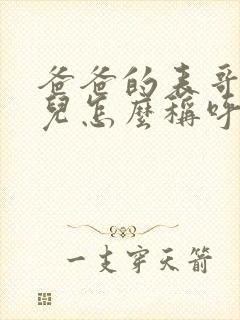 爸爸的表哥
兒怎麼稱呼
一支穿天箭